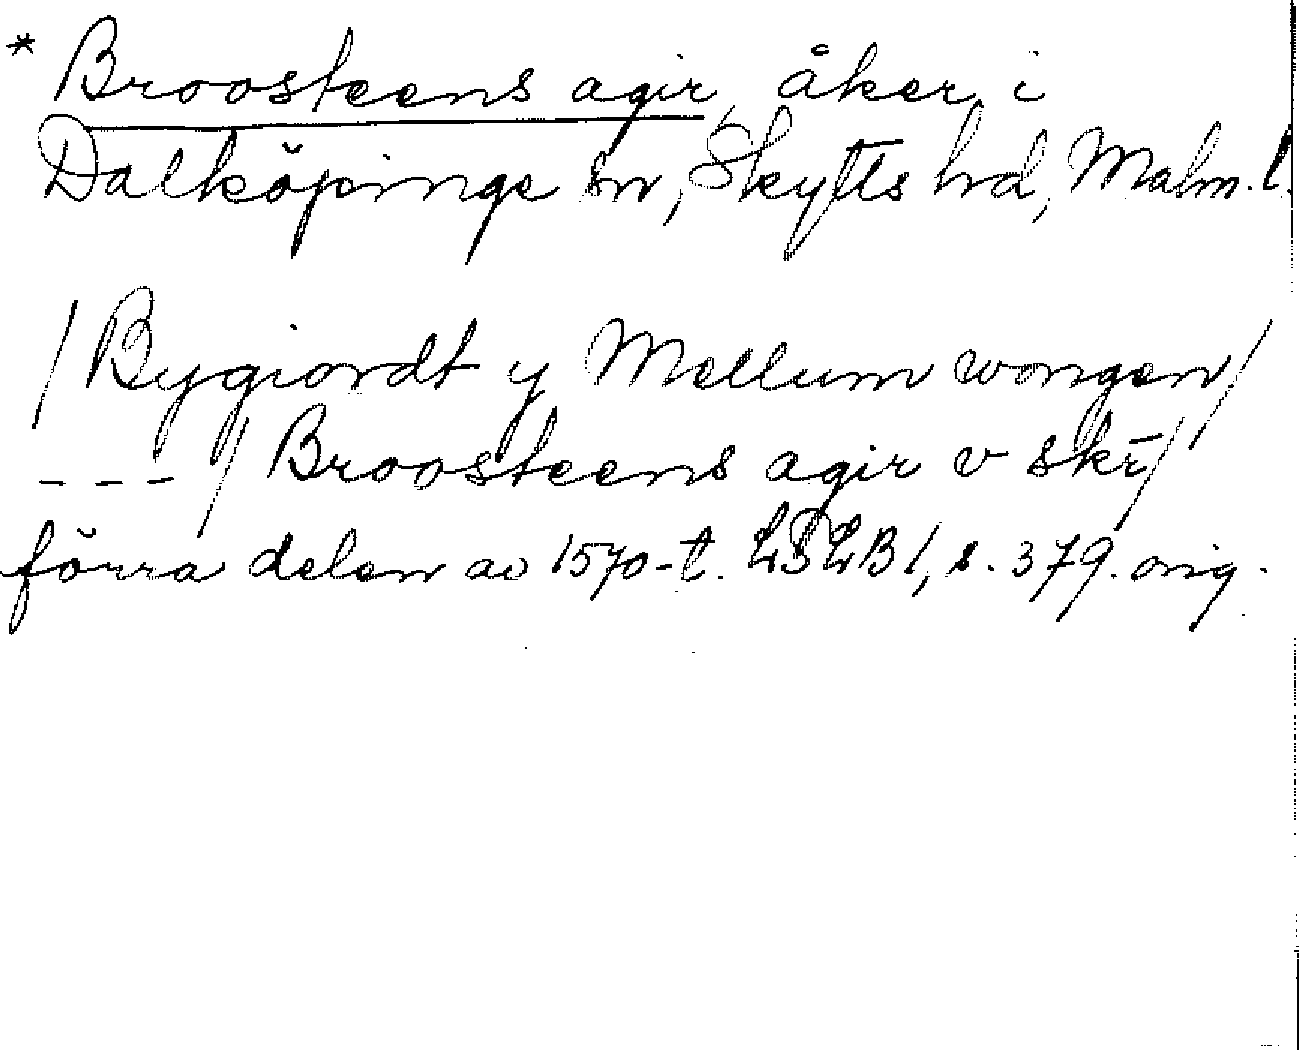 * Broosteens agir, åker i
Dalköpinge sn, Skytts hd, Malm. l.
/Bygiordt y Mellum wongen/
--- / Broosteens agir v skr̄/
förra delen av 1570-t. LSLB 1, s. 379. orig.